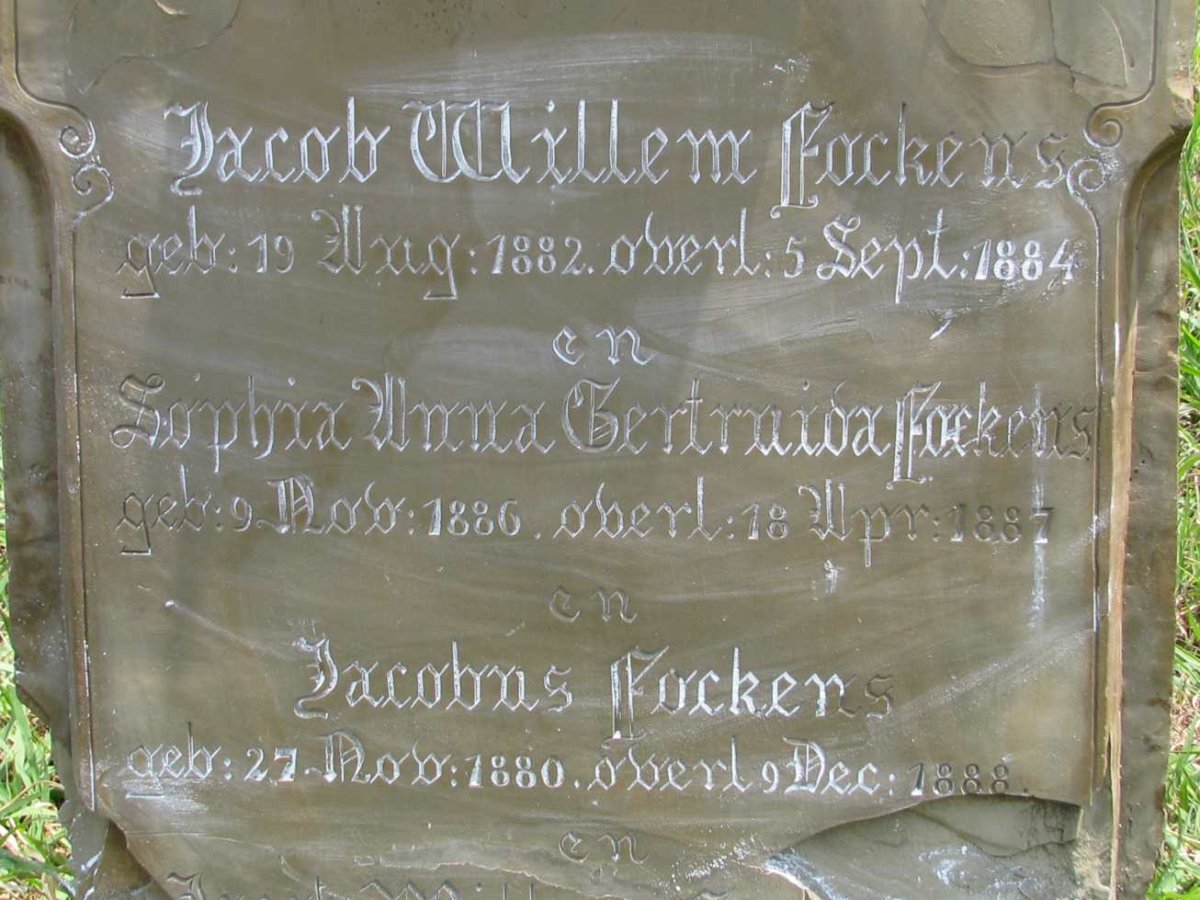 Jacob Willem Fockens
geb: 19 Aug: 1882. overl: 5 Sept: 1884
en
Sophia Anna Gertruida Fockens
geb: 9 Nov: 1886. overl: 18 Apr: 1887
en
Jacobus Fockens
geb: 27 Nov: 1880. overl 9 Dec: 1888.
en